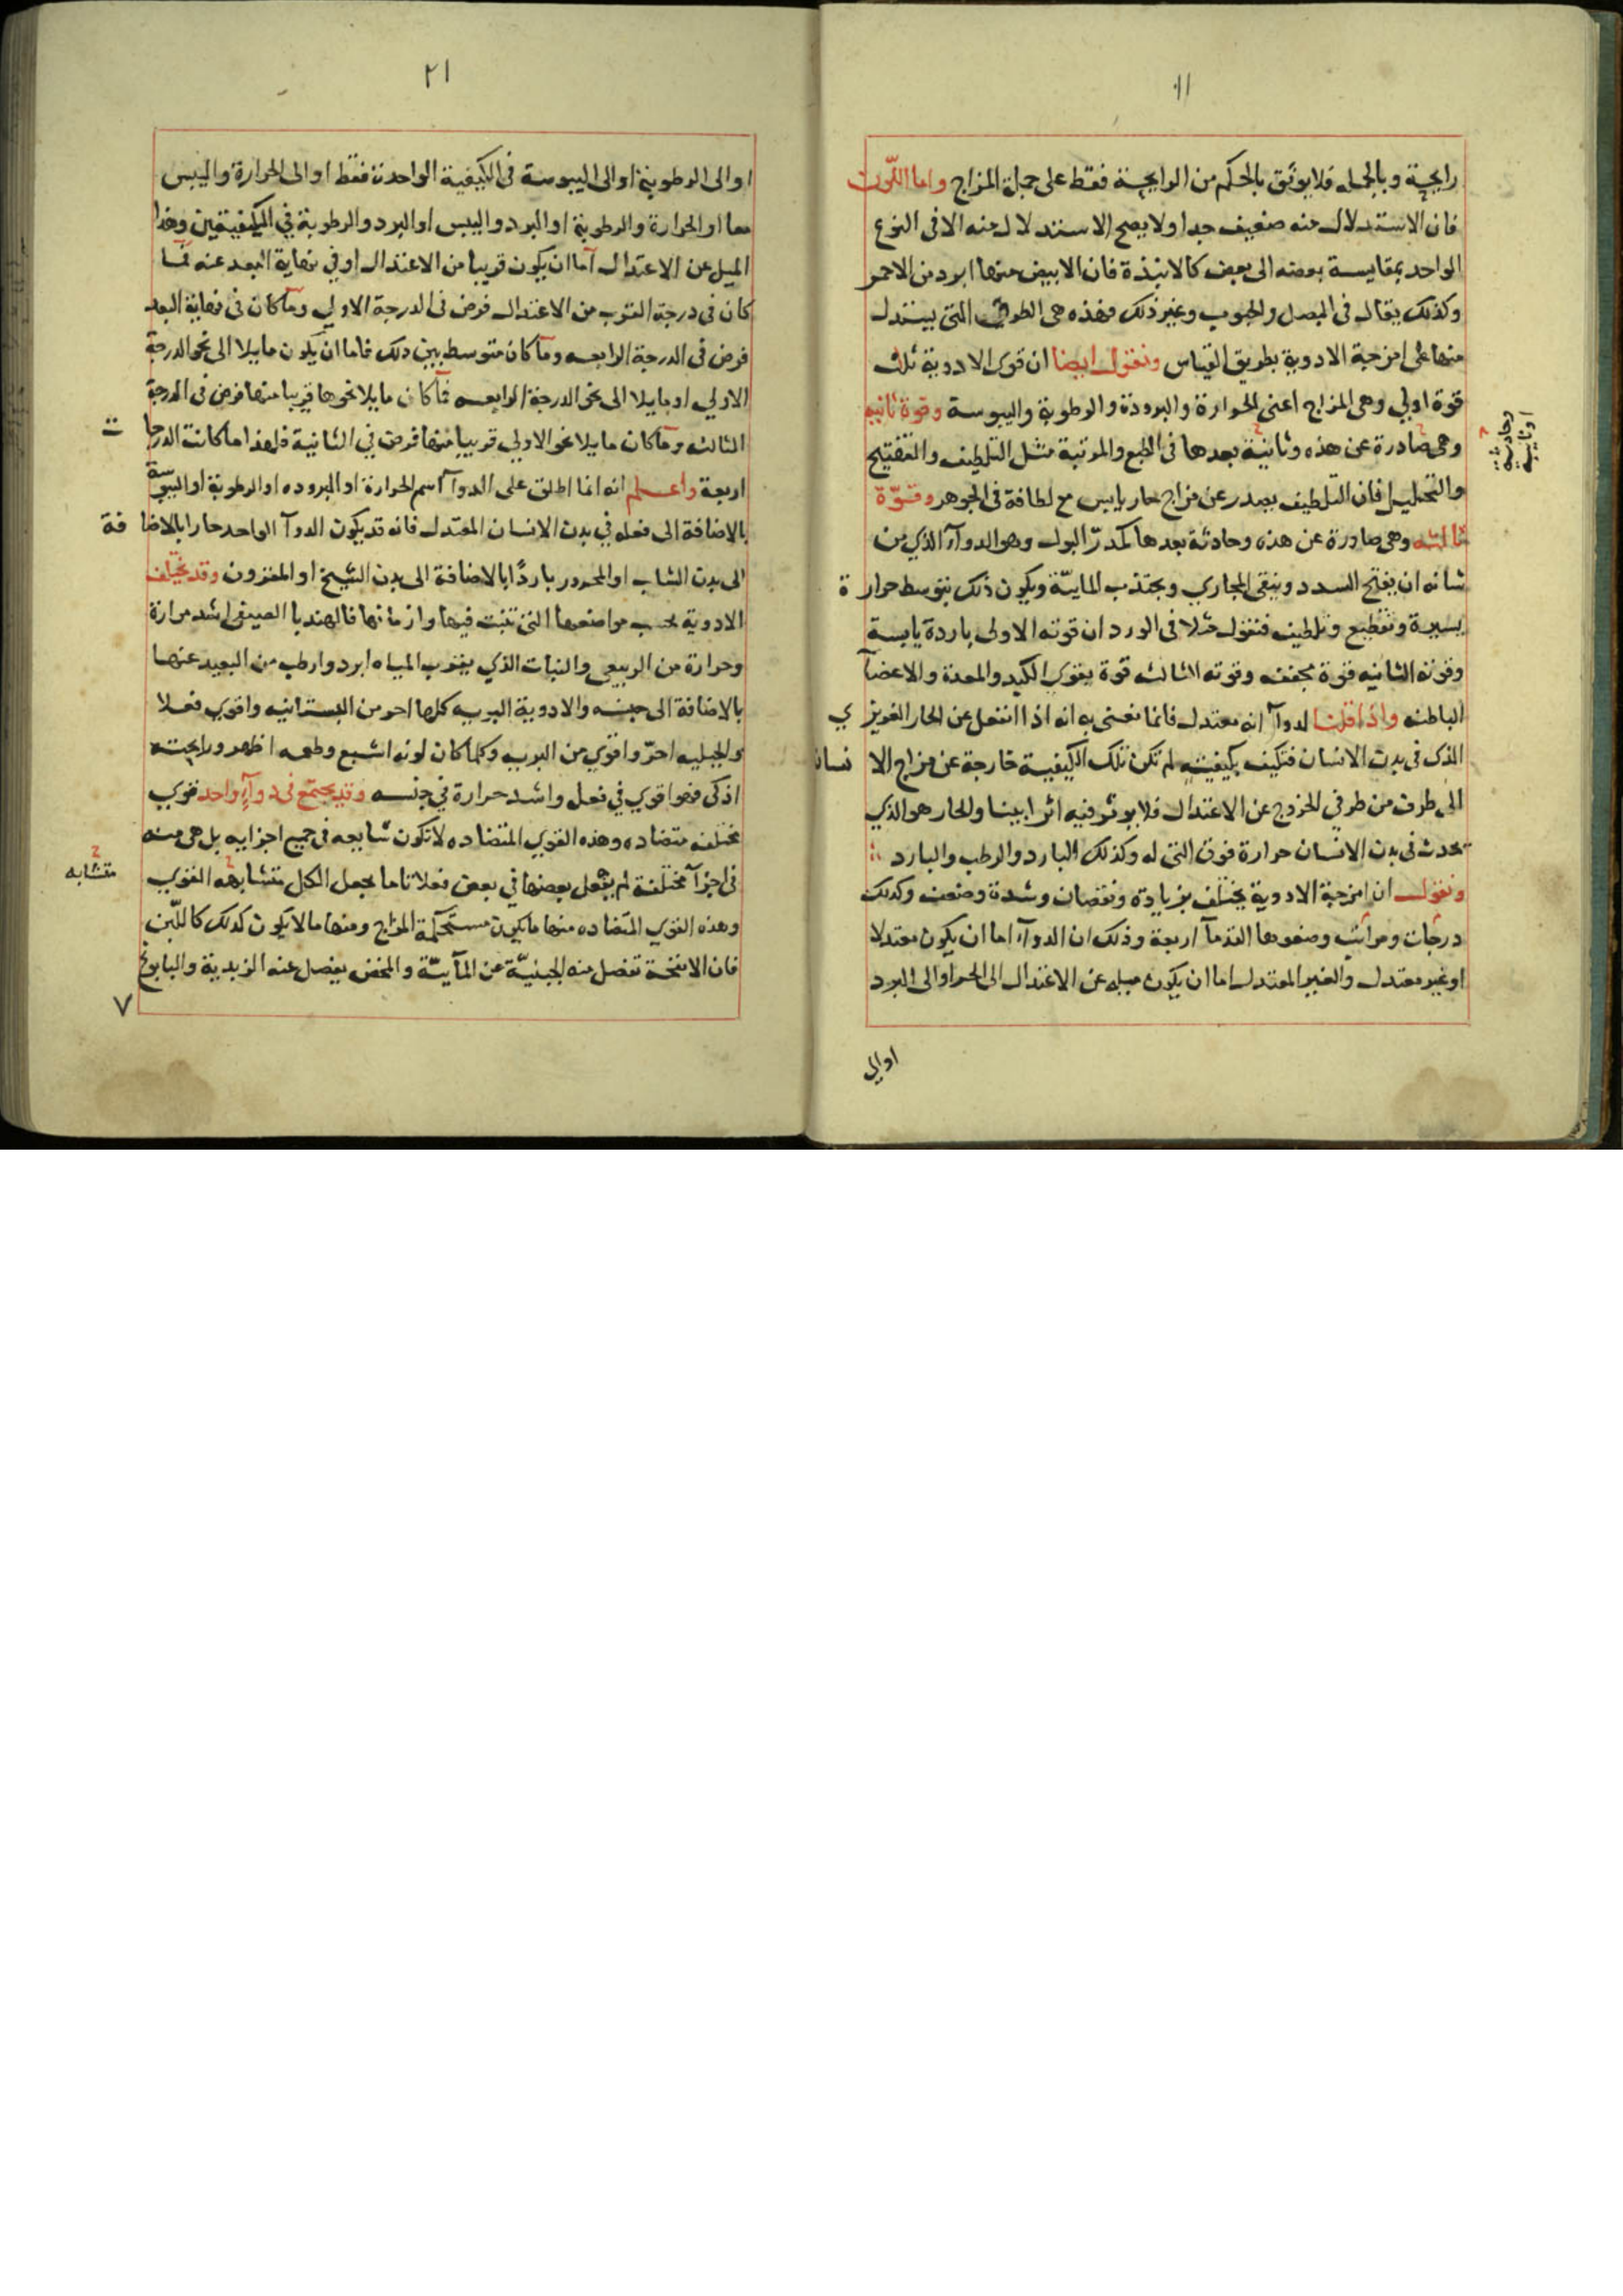 ١١
رايحة وبالجمله فلا يوثق بالحكم من الرايحة فقط على جملة المزاج واما اللون
فان الاستدلال منه ضعيف جدا ولا يصح الاستدلال منه الا فى النوع
الواحد بمقايسة بعضه الى بعض كالانبذة فان الابيض منها ابرد من الاحمر
وكذلك يقال فى البصل والحبوب وغير ذلك فهذه هى الطرق التى يستدل
منها على امزجة الادوية بطريق القياس ونقول ايضا ان قوى الادوية ثلث
قوة اولي وهى المزاج اعنى الحرارة والبرودة والرطوبة واليبوسة وقوة ثانيه
وهى صادرة عن هذه وثانية بعدها فى الطبع والمرتبة مثل التلطيف والتفتيح
وحادثة
او ثانية
والتحليل فان التلطيف يصدر عن مزاج حار يابس مع لطافة فى الجوهر وقوّة
ثالثه وهى صادرة عن هذه وحادثة بعدها كمدرّ البول وهو الدوآء الذي من
شانه ان يفتح السدد وينقى المجاري ويجتذب المايّة ويكون ذلك بتوسط حرارة
يسيرة وتقطيع وتلطيف فنقول مثلا فى الورد ان قوته الاولى باردة يابسة
وقوته الثانيه قوة مجففه وقوته الثالثه قوة يقوي الكبد والمعدة والاعضآ
الباطنه واذا قلنا لدوآء انه معتدل فانما نعنى به انه اذا انفعل عن الحار الغريزي
الذى فى بدن الانسان فتكيف بكيفيته لم تكن تلك الكيفية خارجة عن مزاج الانسان
الى طرف من طرفي الخروج عن الاعتدال فلا يوثر فيه اثرا بينا والحار هو الذي
يحدث فى بدن الانسان حرارة فوق التى له وكذلك البارد والرطب والبارد
ونقول ان امزجة الادوية يختلف بزيادة ونقصان وشدة وضعف وكذلك
درجات ومراتب وضعوها القدمآ اربعة وذلك ان الدوآء اما ان يكون معتدلا
او غير معتدل والغير المعتدل اما ان يكون ميله عن الاعتدال الى الحر او الى البرد
او الى
٢١
او الى الرطوبة او الى اليبوسة فى الكيفية الواحدة فقط او الى الحرارة واليبس
معا او الحرارة والرطوبة او البرد واليبس او البرد والرطوبة في الكيفيتين وهذا
الميل عن الاعتدال اما ان يكون قريبا من الاعتدال او في نهاية البعد عنه فما
كان فى درجة القرب من الاعتدال فرض فى الدرجة الاولي وما كان فى نهاية البعد
فرض فى الدرجة الرابعه وما كان متوسط بين ذلك فاما ان يكون مايلا الى نحو الدرجة
الاولي او مايلا الى نحو الدرجة الرابعه فما كان مايلا نحوها قريبا منها فرض فى الدرجة
الثالثه وما كان مايلا نحو الاولي قريبا منها فرض في الثانية فلهذا ما كانت الدرجات
اربعة واعلم انه انما اطلق على الدوآ اسم الحرارة او البروده او الرطوبة او اليبوسة
بالاضافة الى فعله في بدن الانسان المعتدل فانه قد يكون الدوآ الواحد حارا بالاضافة
الى بدن الشاب او المحرور باردًا بالاضافة الى بدن الشيخ او المقرون وقد يختلف
الادوية بحسب مواضعها التى تنبت فيها وازمانها فالهندبا الصيفى اشد مرارة
وحرارة من الربيعى والنبات الذي يقرب المياه ابرد وارطب من البعيد عنها
بالاضافة الى جنسه والادوية البريه كلها احر من البستانيه واقوي فعلا
والجبليه احرّ واقوي من البريه وكلما كان لونه اشبع وطعمه اظهر ورايحته
اذكى فهو اقوي في فعل واشد حرارة في جنسه وقد يجتمع فى دوآء واحد قوي
مختلفه متضاده وهذه القوي المتضاده لا تكون شايعه فى جميع اجزايه بل هى منه
فى اجزآ مختلفة لم يفعل بعضها في بعض فعلا تاما يجعل الكل متشابهه القوي
متشابه
وهذه القوي المتضاده منها ما يكون مستحكمة المزاج ومنها ما لا يكون كذلك كاللّبن
فان الانفحة تفصل منه الجبنيّة عن المآيّة والمخض يفصل عنه الزبدية والبابونج
٧